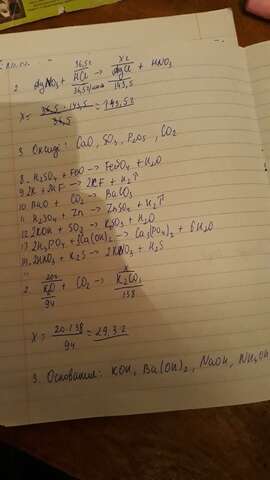 2. AgNO3 + HCl → AgCl + HNO3
36,5г x г
36,5г/моль 143,5
x = 36,5 · 143,5 / 36,5 = 143,5г
3. Оксиды: CaO, SO3, P2O5, CO2
8. H2SO4 + FeO → FeSO4 + H2O
9. 2K + 2HF → 2KF + H2↑
10. BaO + CO2 → BaCO3
11. H2SO4 + Zn → ZnSO4 + H2↑
12. 2KOH + SO2 → K2SO3 + H2O
13. 2H3PO4 + 3Ca(OH)2 → Ca3(PO4)2 + 6H2O
14. 2HNO3 + K2S → 2KNO3 + H2S
20г x
2. K2O + CO2 → K2CO3
94 138
x = 20·138 / 94 = 29,3 г
3. Основания: KOH, Ba(OH)2, NaOH, NH4OH